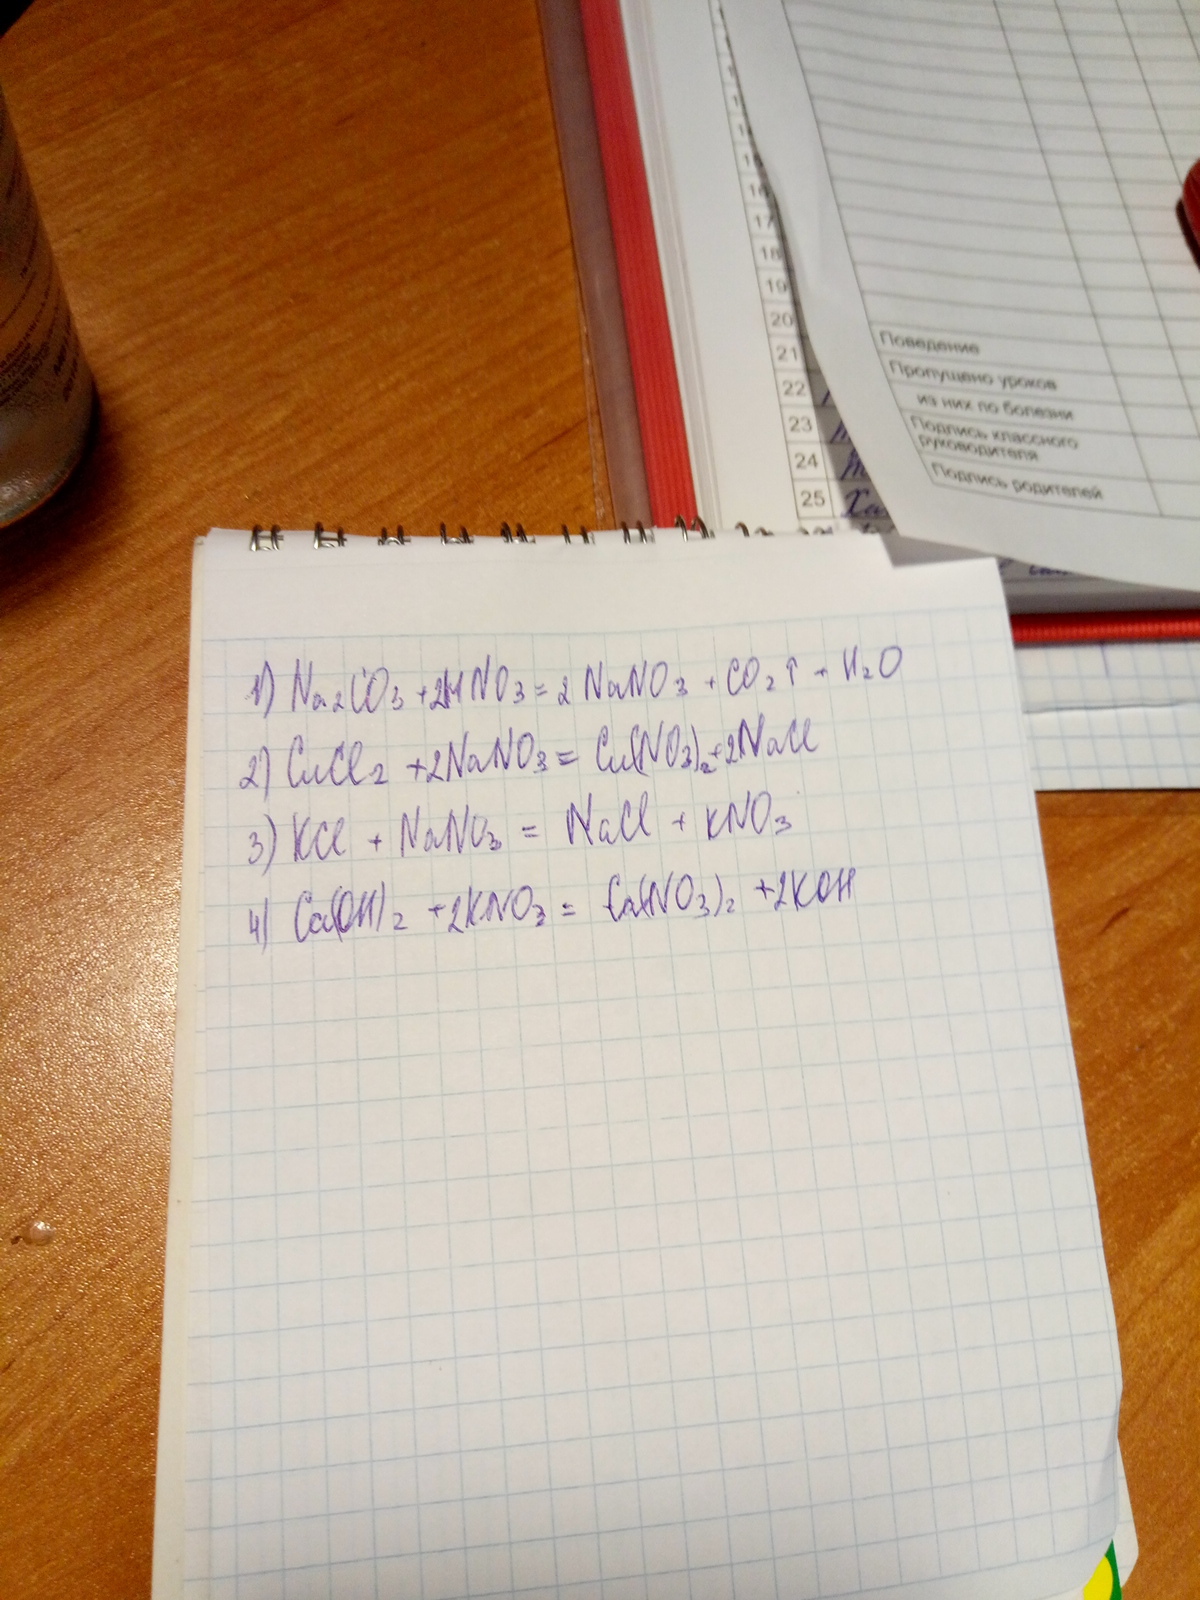 16
17
18
19
20
21
22
23
24
25
Поведение
Пропущено уроков
из них по болезни
Подпись классного
руководителя
Подпись родителей
1) Na₂CO₃ + 2HNO₃ = 2 NaNO₃ + CO₂↑ + H₂O
2) CuCl₂ + 2NaNO₃ = Cu(NO₃)₂ + 2NaCl
3) KCl + NaNO₃ = NaCl + KNO₃
4) Ca(OH)₂ + 2KNO₃ = Ca(NO₃)₂ + 2KOH